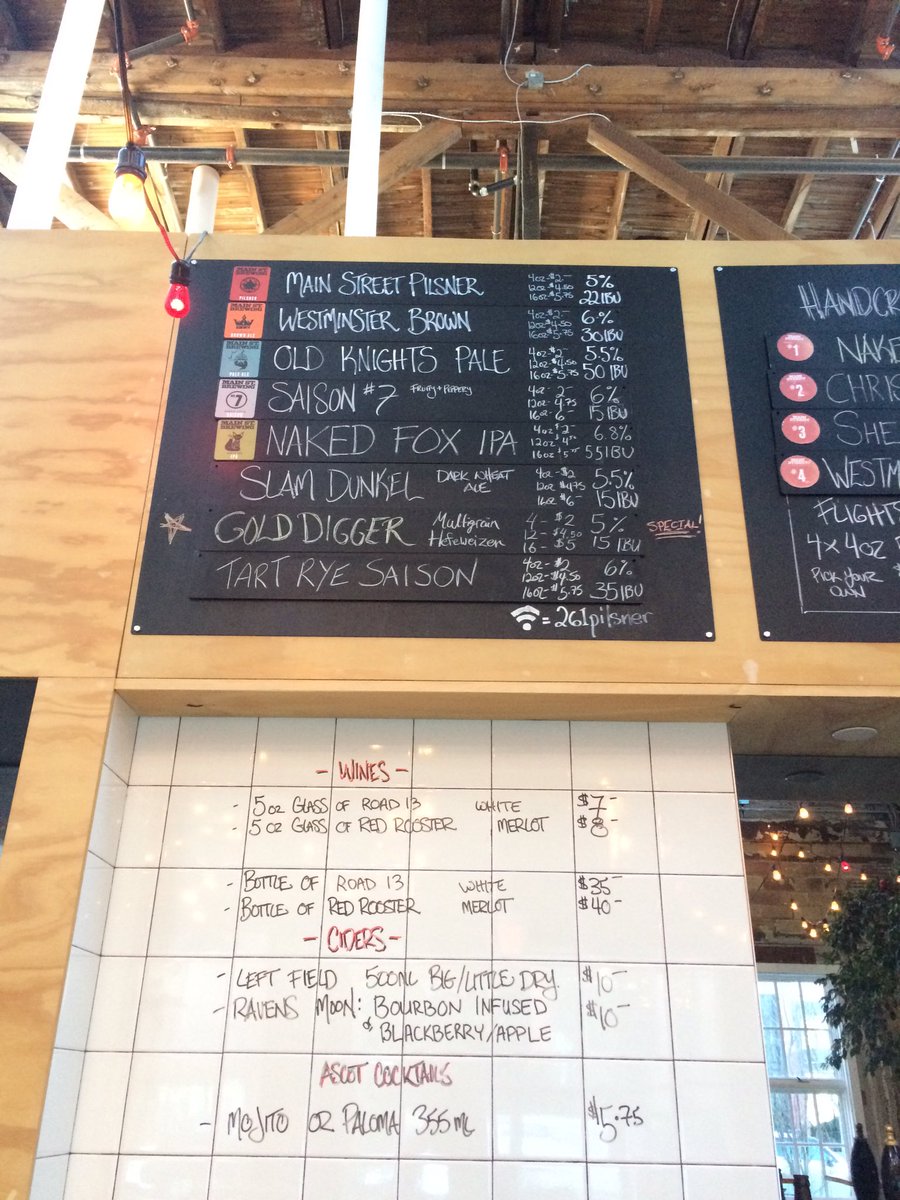 MAIN ST. BREWING PILSNER MAIN STREET PILSNER 4oz-$2- 5%
12oz-$4.50
16oz-$5.75 22IBU
MAIN ST. BREWING BROWN ALE WESTMINSTER BROWN 4oz-$2- 6%
12oz-$4.50
16oz-$5.75 30IBU
MAIN ST. BREWING PALE ALE OLD KNIGHTS PALE 4oz-$2- 5.5%
12oz-$4.50
16oz-$5.75 50 IBU
MAIN ST. BREWING #7 SAISON #7 FRUITY+PEPPERY 4oz-2- 6%
12oz-4.75
16oz-6- 15IBU
MAIN ST. BREWING IPA NAKED FOX IPA 4oz-$2- 6.8%
12oz-$4.50
16oz- 55IBU
SLAM DUNKEL DARK WHEAT ALE 4oz-$2 5.5%
12oz-$4.75
16oz-$6- 15IBU
GOLD DIGGER Multigrain Hefeweizen 4-$2 5% SPECIAL!
12-$4.50
16-$5 15 IBU
TART RYE SAISON 4oz-$2 6%
12oz-$4.50
16oz-$5.75 35IBU
= 261pilsner
HANDCR
#1 NAKE
#2 CHRIS
#3 SHE
#4 WESTM
FLIGHTS
4x4oz
PICK YOUR
OWN
- WINES -
- 5oz GLASS OF ROAD 13 WHITE $7-
- 5oz GLASS OF RED ROOSTER MERLOT $8-
- BOTTLE OF ROAD 13 WHITE $35-
- BOTTLE OF RED ROOSTER MERLOT $40-
- CIDERS -
- LEFT FIELD 500ML BIG/LITTLE DRY. $10-
- RAVENS MOON: BOURBON INFUSED $10-
& BLACKBERRY/APPLE
ASCOT COCKTAILS
- MOJITO OR PALOMA 355ML $5.75